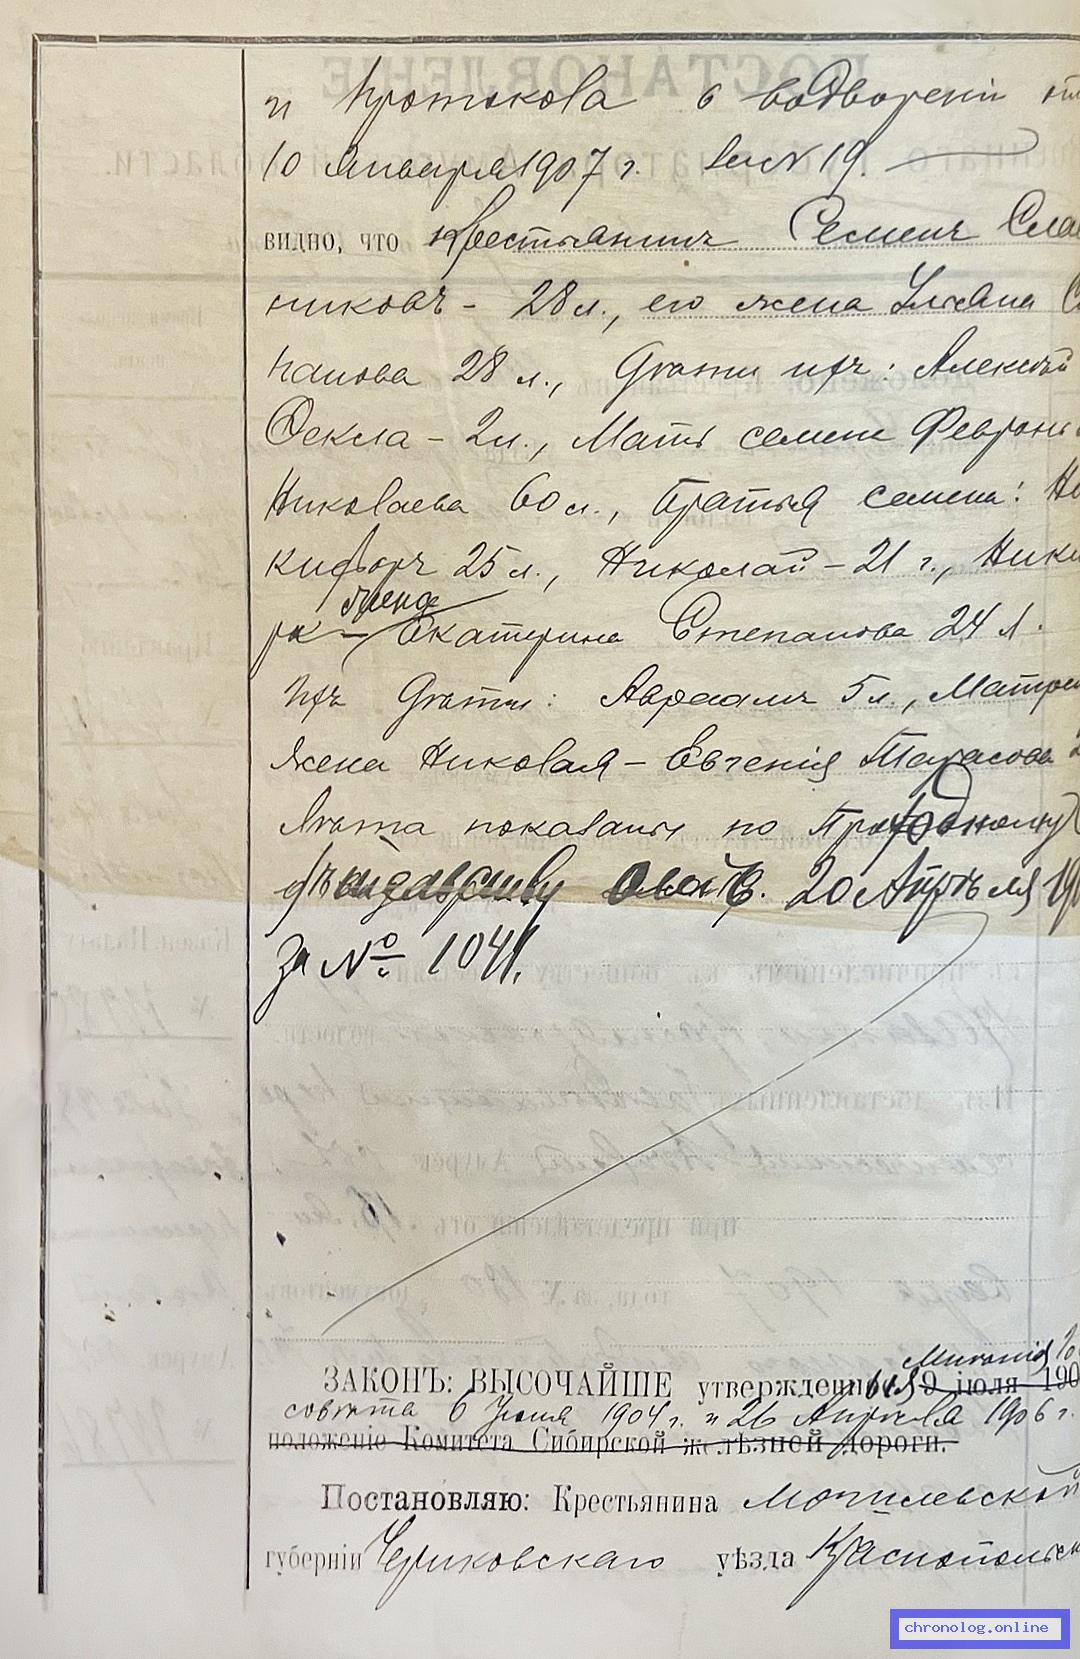 и Протокола о водвореніи от
10 Января 1907 г. за № 19.
видно, что крестьянинъ Семенъ Слас
никовъ - 28 л., его жена Ульяна С
панова 28 л., дѣти ихъ: Алексѣй
Фекла - 2 л., Мать семена Февронь
Николаева 60 л., братья семена: Ни
кифоръ 25 л., Николай - 21 г., Ники
жена
ра - Екатерина Степанова 24 л.
ихъ дѣти: Авраамъ 5 л., Матрен
жена Николая - Евгенія Тарасова 2
Лѣта показаны по Проходному
свидѣтельству 20 Апрѣля 190
за № 1041.
Мнѣнія Го
ЗАКОНЪ: ВЫСОЧАЙШЕ утвержденныя 9 іюля 190
совѣта 6 Іюня 1904 г. и 26 Апрѣля 1906 г.
положеніе Комитета Сибирской желѣзной дороги.
Постановляю: Крестьянина Могилевской
губерніи Чериковскаго уѣзда Краснопольск
chronolog.online